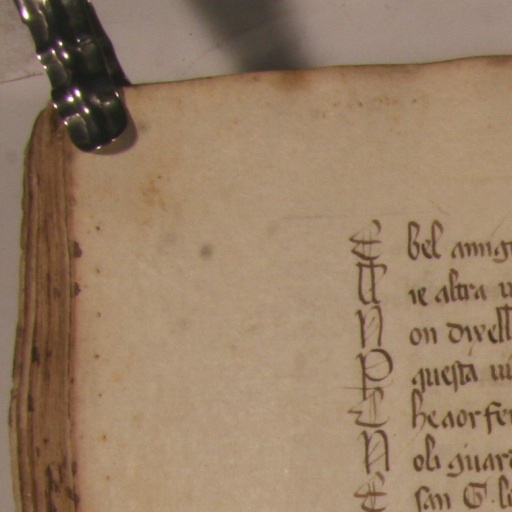 E bel amig
U ie altra u
N on direll
P questa ui
C he aor fer
N oli guard
E san G. lo